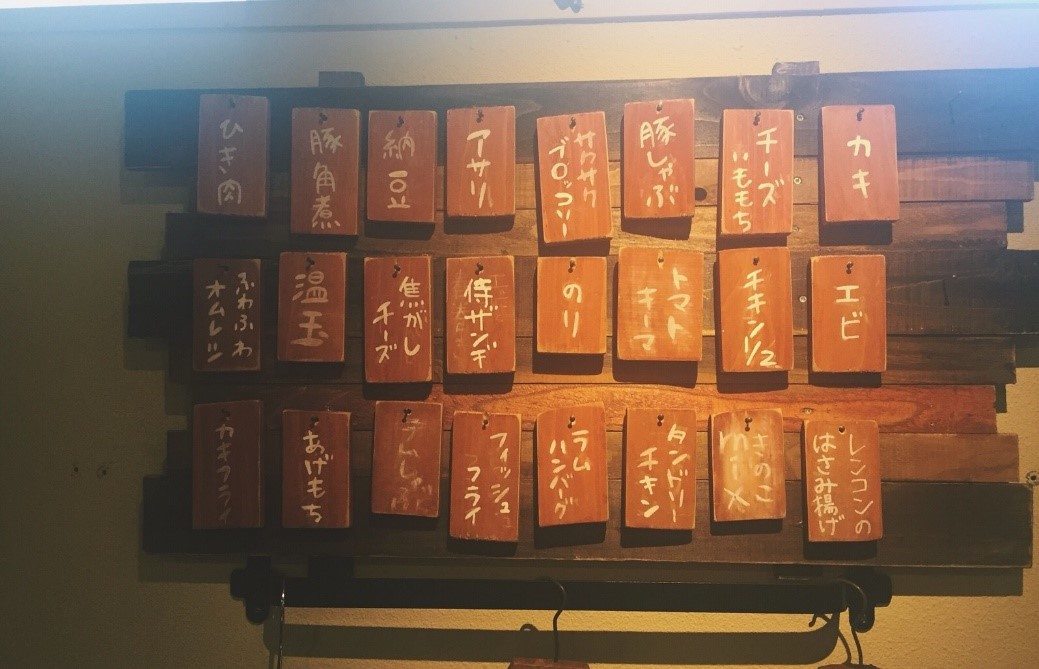 ひき肉
豚角煮
納豆
アサリ
サクサク
ブロッコリー
豚しゃぶ
チーズ
いももち
カキ
ふわふわ
オムレツ
温玉
焦がし
チーズ
侍ザンギ
のり
トマト
キーマ
チキン1/2
エビ
カキフライ
あげもち
ラムしゃぶ
フィッシュ
フライ
ラム
ハンバーグ
タンドリー
チキン
きのこ
レンコンの
はさみ揚げ